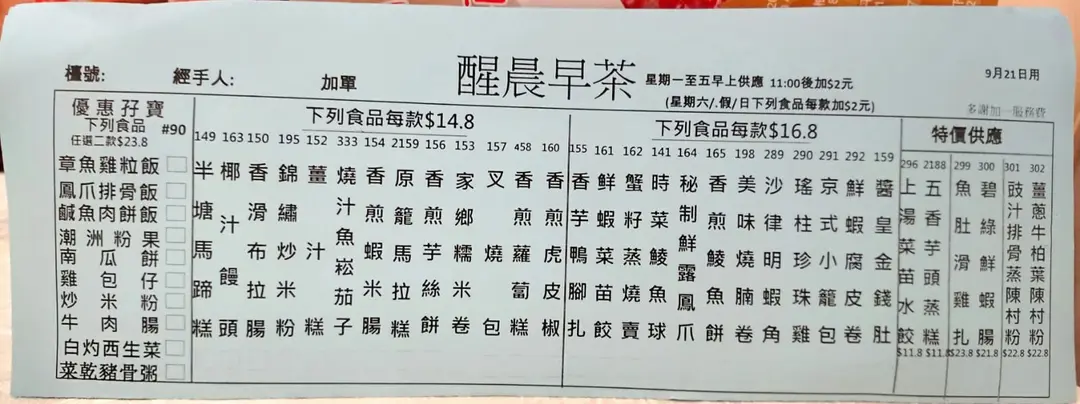 檯號:
經手人:
加單
醒晨早茶
星期一至五早上供應 11:00後加$2元
(星期六/.假/日下列食品每款加$2元)
9月21日用
多謝加一服務費
優惠孖寶
下列食品 #90
任選二款$23.8
章魚雞粒飯
鳳爪排骨飯
鹹魚肉餅飯
潮洲粉果
南瓜餅
雞包仔
炒米粉
牛肉腸
白灼西生菜
菜乾豬骨粥
下列食品每款$14.8
149 半塘馬蹄糕
163 椰汁饅頭
150 香滑布拉腸
195 錦繡炒米粉
152 薑汁糕
333 燒汁魚崧茄子
154 香煎蝦米腸
2159 原籠馬拉糕
156 香煎芋絲餅
153 家鄉糯米卷
157 叉燒包
458 香煎蘿蔔糕
160 香煎虎皮椒
下列食品每款$16.8
155 香芋鴨腳扎
161 鮮蝦菜苗餃
162 蟹籽燒賣
141 時菜鯪魚球
164 秘制鮮露鳳爪
165 香煎鯪魚餅
198 美味燒腩卷
289 沙律明蝦角
290 瑤柱珍珠雞
291 京式小籠包
292 鮮蝦腐皮卷
159 醬皇金錢肚
特價供應
296 上湯菜苗水餃 $11.8
2188 五香芋頭蒸糕 $11.8
299 魚肚滑雞扎 $23.8
300 碧綠鮮蝦腸 $21.8
301 豉汁排骨蒸陳村粉 $22.8
302 薑蔥牛柏葉陳村粉 $22.8